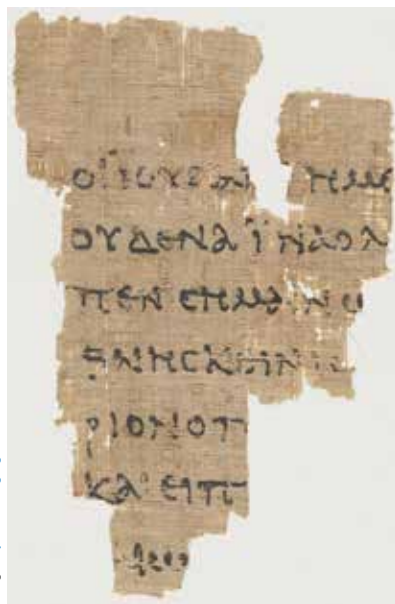 ΟΙ ΙΟΥΔΑΙ ΗΜΕ
ΟΥΔΕΝΑ ΪΝΑ Ο Λ
ΠΕΝ CΗΜΑΙΝΩ
ΘΝΗCΚΕΙΝ
ΡΙΟΝ Ο Π
ΚΑΙ ΕΙΠ